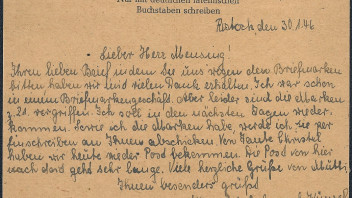 Nur mit deutschen lateinischen
Buchstaben schreiben
den 30.1.46
Lieber Herr Mensing!
Ihren lieben Brief in dem Sie uns wegen den Briefmarken
bitten haben wir mit vielen Dank erhalten. Ich war schon
in einem Briefmarkengeschäft. Aber leider sind die Marken
z. Zt. vergriffen. Ich soll in den nächsten Tagen wieder
kommen. Sowie ich die Marken habe, werde ich sie per
einschreiben an Ihnen abschicken. Von Tante Christel
haben wir heute wieder Post bekommen. Die Post von hier
nach dort geht sehr lange. Viele herzliche Grüße von Mutti.
Ihnen besonders Grüßt